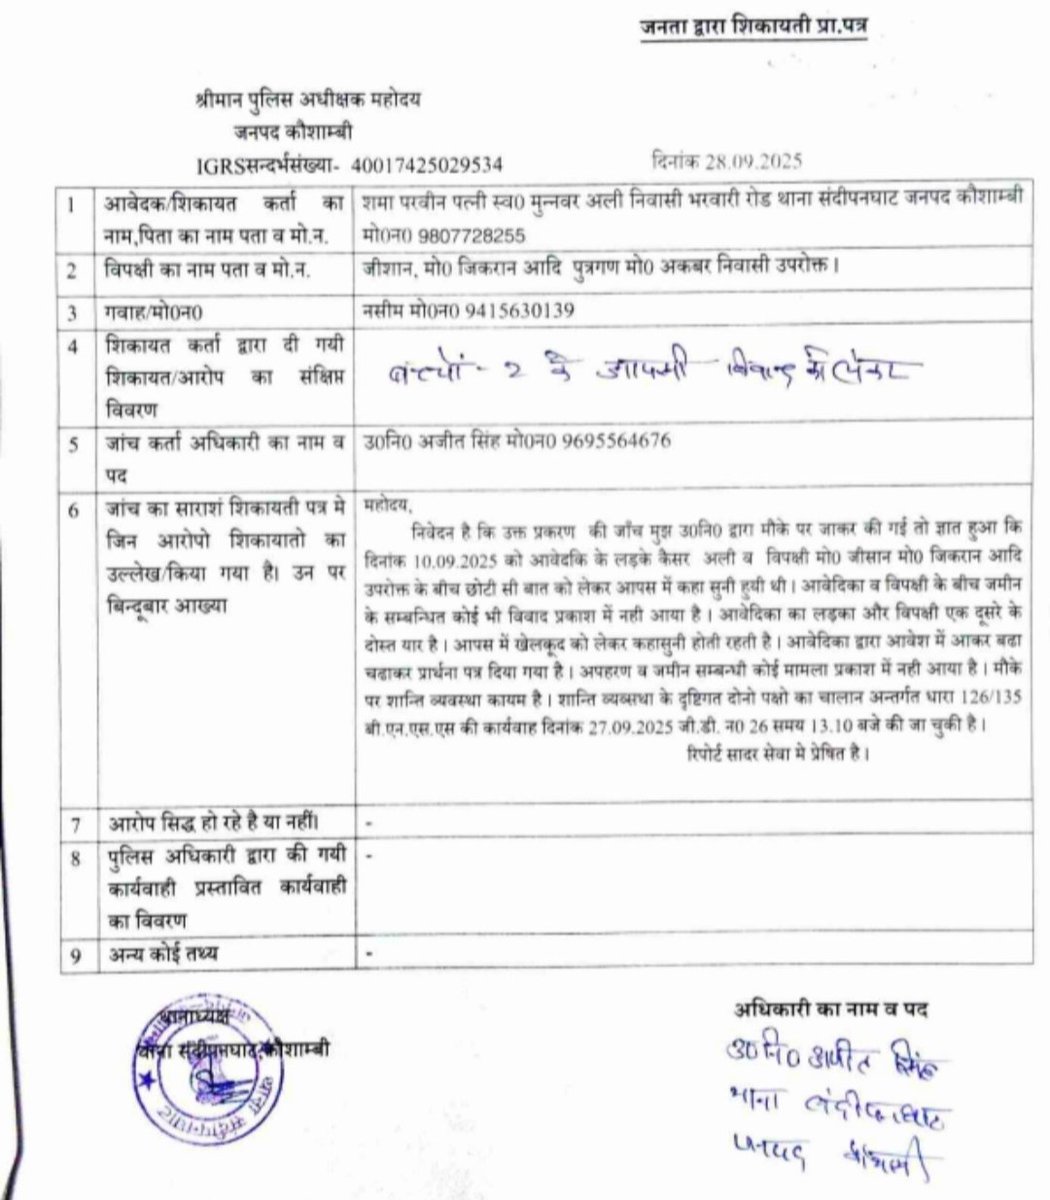 जनता द्वारा शिकायती प्रा.पत्र
श्रीमान पुलिस अधीक्षक महोदय
जनपद कौशाम्बी
IGRSसन्दर्भसंख्या- 40017425029534
दिनांक 28.09.2025
1
आवेदक/शिकायत कर्ता का
नाम,पिता का नाम पता व मो.न.
शमा परवीन पत्नी स्व0 मुन्नवर अली निवासी भरवारी रोड थाना संदीपनघाट जनपद कौशाम्बी
मो0न0 9807728255
2
विपक्षी का नाम पता व मो.न.
जीशान, मो0 जिकरान आदि पुत्रगण मो0 अकबर निवासी उपरोक्त।
3
गवाह/मो0न0
नसीम मो0न0 9415630139
4
शिकायत कर्ता द्वारा दी गयी
शिकायत/आरोप का संक्षिप्त
विवरण
बच्चों - 2 के आपसी विवाद को लेकर
5
जांच कर्ता अधिकारी का नाम व
पद
उ0नि0 अजीत सिंह मो0न0 9695564676
6
जांच का साराशं शिकायती पत्र मे
जिन आरोपो शिकायातो का
उल्लेख/किया गया है। उन पर
बिन्दूबार आख्या
महोदय,
निवेदन है कि उक्त प्रकरण की जाँच मुझ उ0नि0 द्वारा मौके पर जाकर की गई तो ज्ञात हुआ कि
दिनांक 10.09.2025 को आवेदकि के लड़के कैसर अली व विपक्षी मो0 जीसान मो0 जिकरान आदि
उपरोक्त के बीच छोटी सी बात को लेकर आपस में कहा सुनी हुयी थी। आवेदिका व विपक्षी के बीच जमीन
के सम्बन्धित कोई भी विवाद प्रकाश में नही आया है। आवेदिका का लड़का और विपक्षी एक दूसरे के
दोस्त यार है। आपस में खेलकूद को लेकर कहासुनी होती रहती है। आवेदिका द्वारा आवेश में आकर बढा
चढाकर प्रार्थना पत्र दिया गया है। अपहरण व जमीन सम्बन्धी कोई मामला प्रकाश में नही आया है। मौके
पर शान्ति व्यवस्था कायम है। शान्ति व्यव्सथा के दृष्टिगत दोनो पक्षो का चालान अन्तर्गत धारा 126/135
बी.एन.एस.एस की कार्यवाह दिनांक 27.09.2025 जी.डी. न0 26 समय 13.10 बजे की जा चुकी है।
रिपोर्ट सादर सेवा मे प्रेषित है।
7
आरोप सिद्ध हो रहे है या नहीं।
-
8
पुलिस अधिकारी द्वारा की गयी
कार्यवाही प्रस्तावित कार्यवाही
का विवरण
-
9
अन्य कोई तथ्य
-
थानाध्यक्ष
थाना संदीपनघाट,कौशाम्बी
थाना संदीपनघाट
अधिकारी का नाम व पद
उ0नि0 अजीत सिंह
थाना संदीपनघाट
जनपद कौशाम्बी